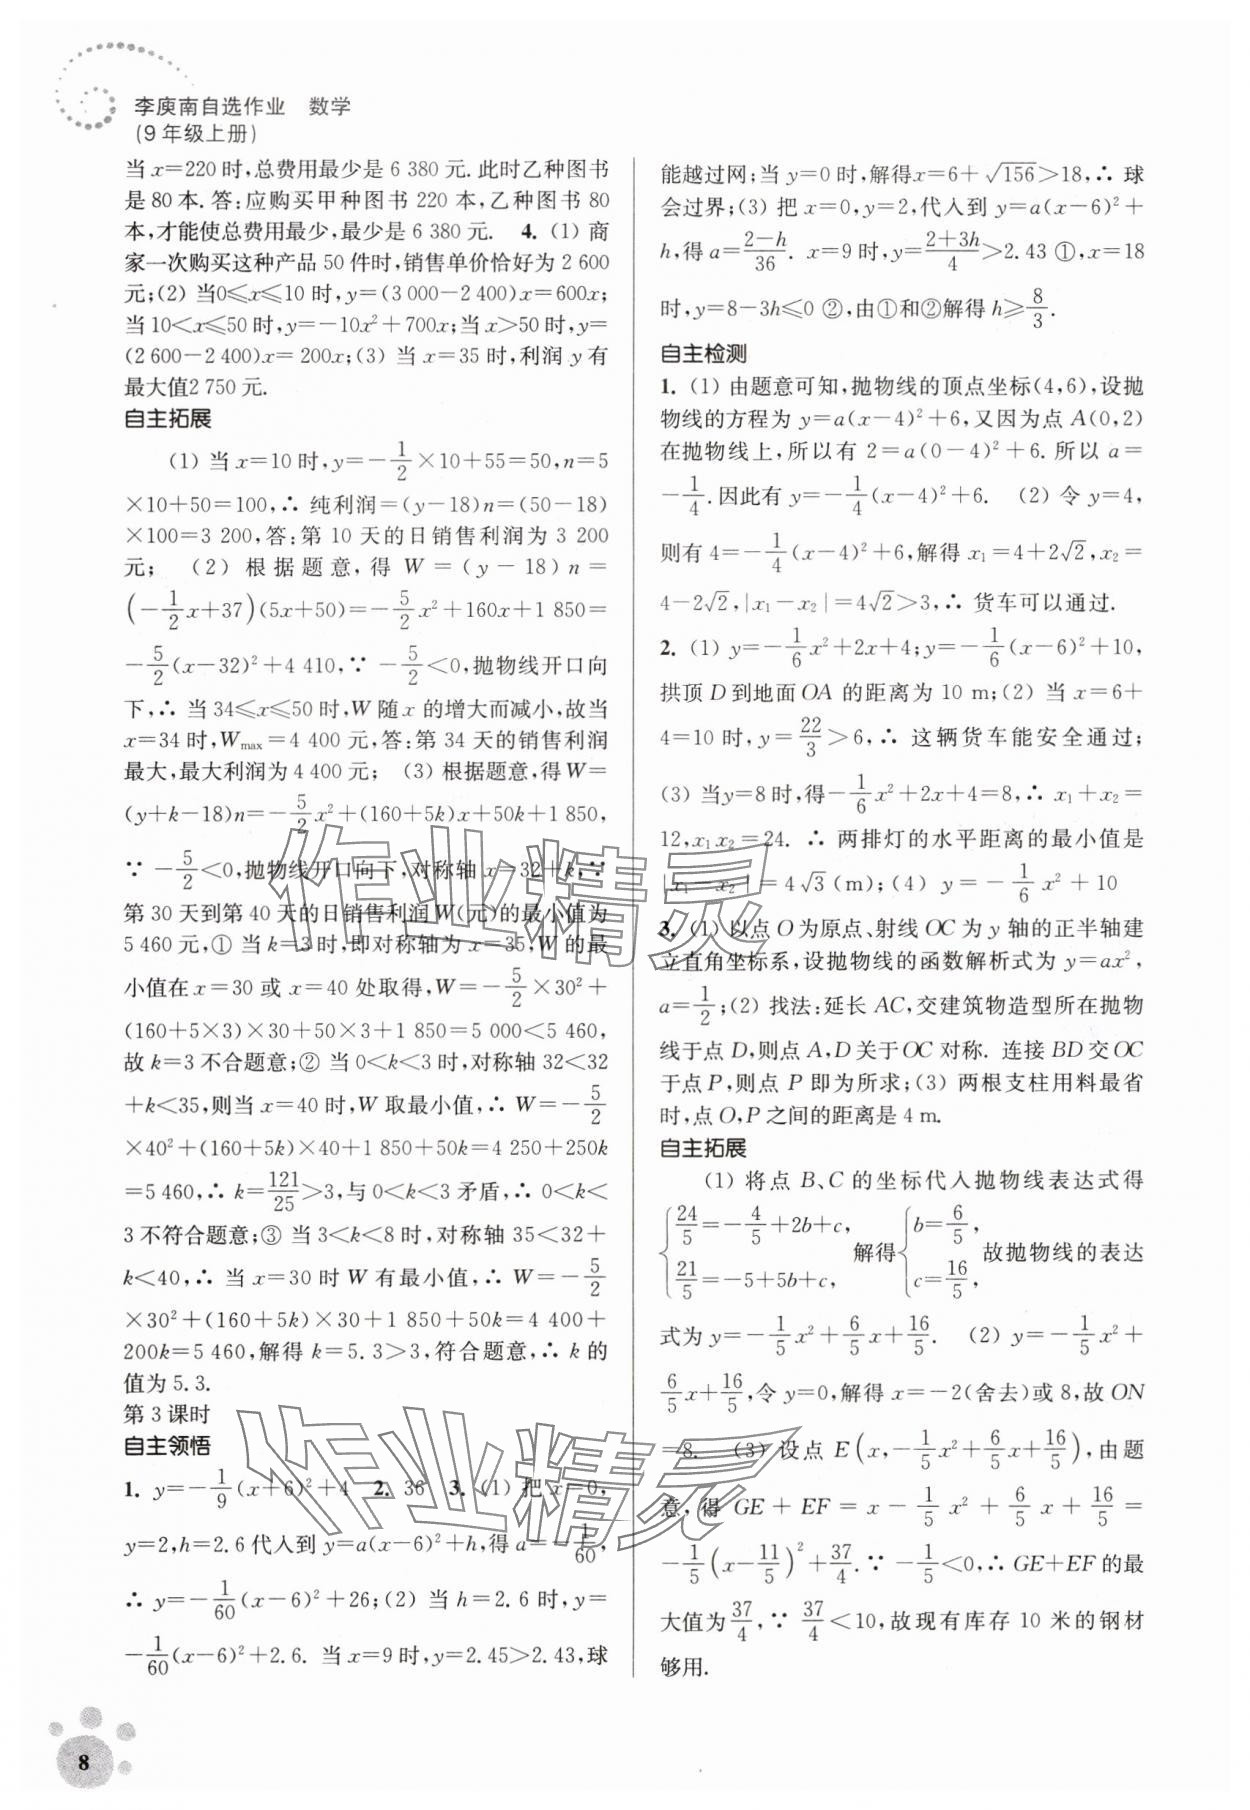 李庾南自选作业 数学
(9年级上册)
当x=220时,总费用最少是6 380元.此时乙种图书
是80本.答:应购买甲种图书220本,乙种图书80
本,才能使总费用最少,最少是6 380元. 4. (1) 商
家一次购买这种产品50件时,销售单价恰好为2 600
元;(2) 当0⩽x⩽10时,y=(3 000-2 400)x=600x;
当10<x⩽50时,y=-10x²+700x;当x>50时,y=
(2 600-2 400)x=200x;(3) 当x=35时,利润y有
最大值2 750元.
自主拓展
(1) 当x=10时,y=-1/2×10+55=50,n=5
×10+50=100,∴ 纯利润=(y-18)n=(50-18)
×100=3 200,答:第10天的日销售利润为3 200
元; (2) 根据题意,得W=(y-18)n=
(-1/2x+37)(5x+50)=-5/2x²+160x+1 850=
-5/2(x-32)²+4 410,∵ -5/2<0,抛物线开口向
下,∴ 当34⩽x⩽50时,W随x的增大而减小,故当
x=34时,Wmax=4 400元,答:第34天的销售利润
最大,最大利润为4 400元; (3) 根据题意,得W=
(y+k-18)n=-5/2x²+(160+5k)x+50k+1 850,
∵ -5/2<0,抛物线开口向下,对称轴x=32+k,∵
第30天到第40天的日销售利润W(元)的最小值为
5 460元,① 当k=3时,即对称轴为x=35,W的最
小值在x=30或x=40处取得,W=-5/2×30²+
(160+5×3)×30+50×3+1 850=5 000<5 460,
故k=3不合题意;② 当0<k<3时,对称轴32<32
+k<35,则当x=40时,W取最小值,∴ W=-5/2
×40²+(160+5k)×40+1 850+50k=4 250+250k
=5 460,∴ k=121/25>3,与0<k<3矛盾,∴ 0<k<
3不符合题意;③ 当3<k<8时,对称轴35<32+
k<40,∴ 当x=30时W有最小值,∴ W=-5/2
×30²+(160+5k)×30+1 850+50k=4 400+
200k=5 460,解得k=5.3>3,符合题意,∴ k的
值为5.3.
第3课时
自主领悟
1. y=-1/9(x+6)²+4 2. 36 3. (1) 把x=0,
y=2,h=2.6代入到y=a(x-6)²+h,得a=-1/60,
∴ y=-1/60(x-6)²+26;(2) 当h=2.6时,y=
-1/60(x-6)²+2.6. 当x=9时,y=2.45>2.43,球
能越过网;当y=0时,解得x=6+√156>18,∴ 球
会过界;(3) 把x=0,y=2,代入到y=a(x-6)²+
h,得a=2-h/36. x=9时,y=2+3h/4>2.43 ①,x=18
时,y=8-3h⩽0 ②,由①和②解得h⩾8/3.
自主检测
1. (1) 由题意可知,抛物线的顶点坐标(4,6),设抛
物线的方程为y=a(x-4)²+6,又因为点A(0,2)
在抛物线上,所以有2=a(0-4)²+6.所以a=
-1/4.因此有y=-1/4(x-4)²+6. (2) 令y=4,
则有4=-1/4(x-4)²+6,解得x₁=4+2√2,x₂=
4-2√2,|x₁-x₂|=4√2>3,∴ 货车可以通过.
2. (1) y=-1/6x²+2x+4;y=-1/6(x-6)²+10,
拱顶D到地面OA的距离为10 m;(2) 当x=6+
4=10时,y=22/3>6,∴ 这辆货车能安全通过;
(3) 当y=8时,得-1/6x²+2x+4=8,∴ x₁+x₂=
12,x₁x₂=24. ∴ 两排灯的水平距离的最小值是
|x₁-x₂|=4√3(m);(4) y=-1/6x²+10
3. (1) 以点O为原点、射线OC为y轴的正半轴建
立直角坐标系,设抛物线的函数解析式为y=ax²,
a=1/2;(2) 找法:延长AC,交建筑物造型所在抛物
线于点D,则点A,D关于OC对称. 连接BD交OC
于点P,则点P即为所求;(3) 两根支柱用料最省
时,点O,P之间的距离是4 m.
自主拓展
(1) 将点B、C的坐标代入抛物线表达式得
{24/5=-4/5+2b+c, 21/5=-5+5b+c, 解得{b=6/5, c=16/5, 故抛物线的表达
式为y=-1/5x²+6/5x+16/5. (2) y=-1/5x²+
6/5x+16/5,令y=0,解得x=-2(舍去)或8,故ON
=8. (3) 设点E(x,-1/5x²+6/5x+16/5),由题
意,得GE+EF=x-1/5x²+6/5x+16/5=
-1/5(x-11/5)²+37/4.∵ -1/5<0,∴ GE+EF的最
大值为37/4,∵ 37/4<10,故现有库存10米的钢材
够用.
作业精灵
作业精灵
8